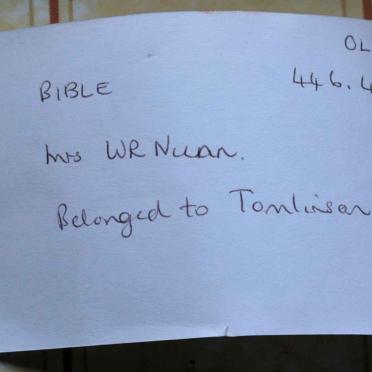 OL
BIBLE 446.4
Mrs WR Nunn.
Belonged to Tomlinson